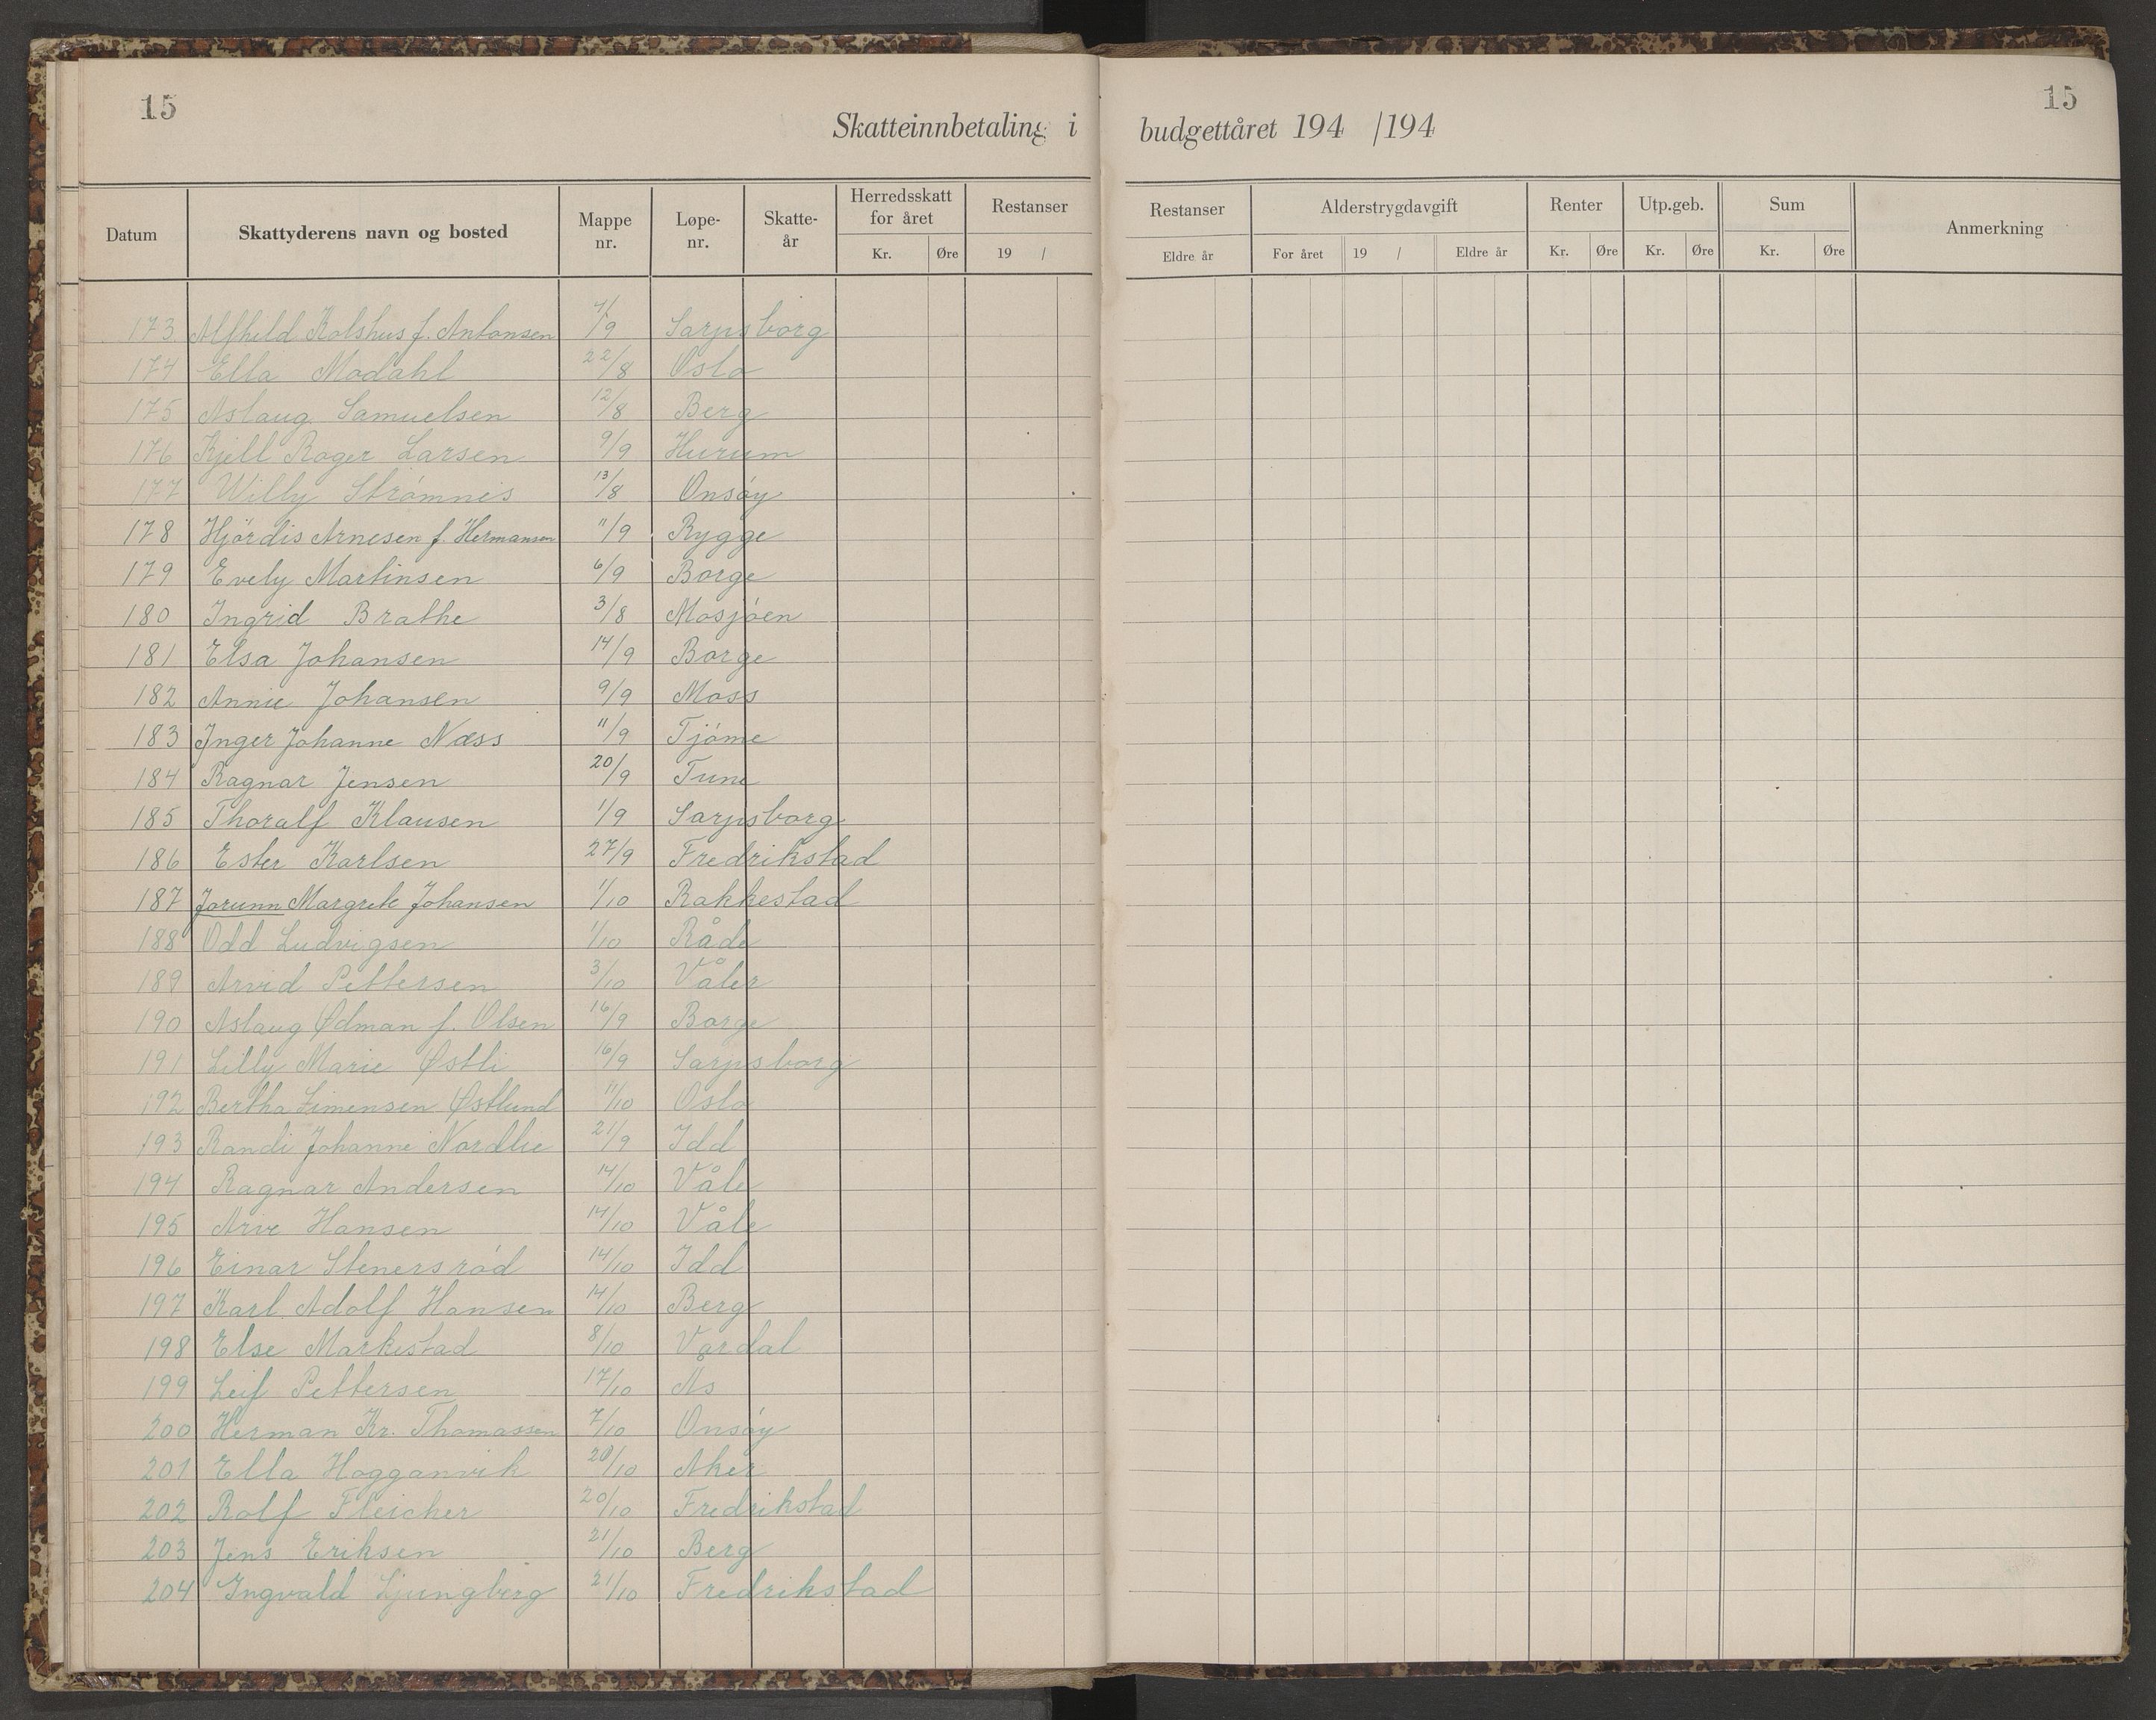 15
15
Skatteinnbetaling i budgettåret 194 /194
Datum Skattyderens navn og bosted Mappe nr. Løpe-nr. Skatte-år Herredsskatt for året Kr. Øre Restanser 19 / Restanser Eldre år Alderstrygdavgift For året 19 / Eldre år Renter Kr. Øre Utp.geb. Kr. Øre Sum Kr. Øre Anmerkning
173 Alfhild Kolshus f. Antonsen 4/9 Sarpsborg
174 Ella Modahl 22/8 Oslo
175 Aslaug Samuelsen 12/8 Berg
176 Kjell Roger Larsen 9/9 Hurum
177 Willy Strømnes 13/8 Onsøy
178 Hjördis Arnesen f. Hermansen 11/9 Rygge
179 Evely Martinsen 6/9 Borge
180 Ingrid Brathe 3/8 Mosjøen
181 Elsa Johansen 14/9 Borge
182 Annie Johansen 9/9 Moss
183 Inger Johanne Næss 11/9 Tjøme
184 Ragnar Jensen 20/9 Tune
185 Thoralf Klausen 1/9 Sarpsborg
186 Ester Karlsen 27/9 Fredrikstad
187 Jorunn Margrete Johansen 1/10 Rakkestad
188 Odd Ludvigsen 1/10 Råde
189 Arvid Pettersen 3/10 Våler
190 Aslaug Ødman f. Olsen 16/9 Borge
191 Lilly Marie Østli 16/9 Sarpsborg
192 Bertha Simensen Østlund 11/10 Oslo
193 Randi Johanne Nordlie 21/9 Idd
194 Ragnar Andersen 14/10 Våle
195 Arve Hansen 14/10 Våle
196 Einar Stenersrød 14/10 Idd
197 Karl Adolf Hansen 14/10 Berg
198 Else Markestad 8/10 Vardal
199 Leif Pettersen 17/10 Ås
200 Herman Kr. Thomassen 7/10 Onsøy
201 Ella Hogganvik 20/10 Aker
202 Rolf Fleicher 20/10 Fredrikstad
203 Jens Eriksen 21/10 Berg
204 Ingvald Ljungberg 21/10 Fredrikstad